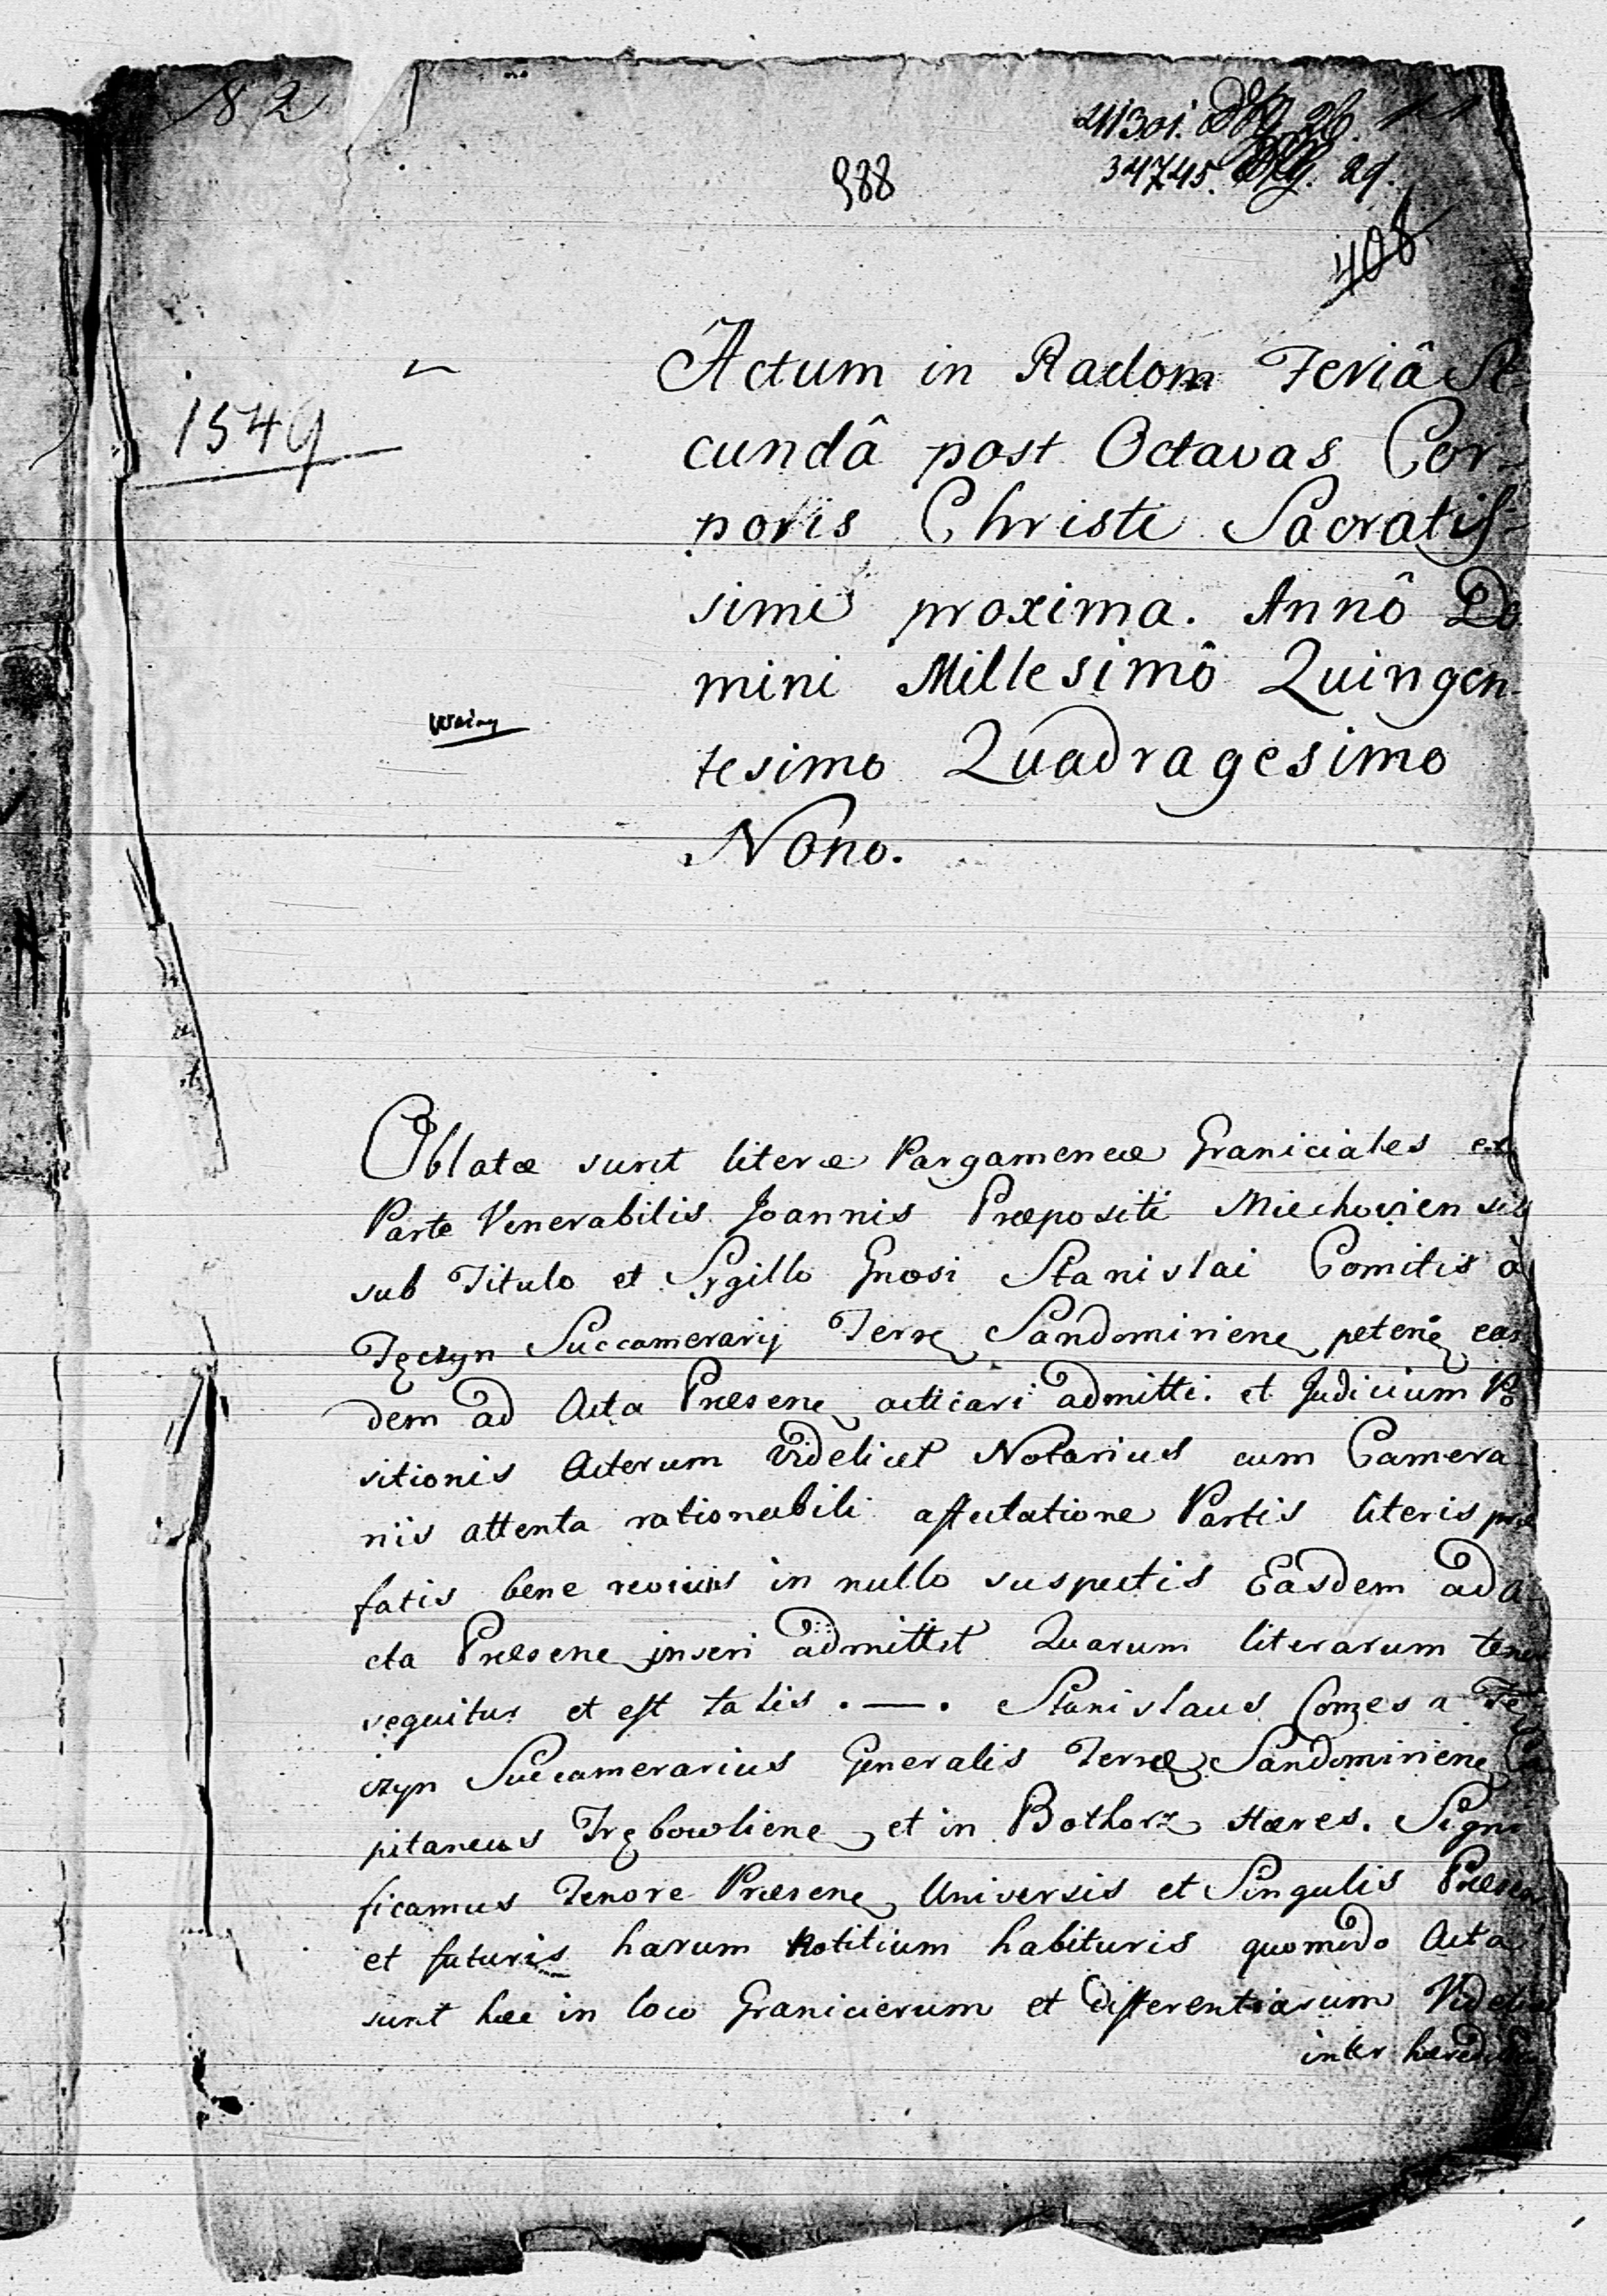 82
988
408
1549
Actum in Radom Feriâ Se-
cundâ post Octavas Cor-
poris Christi Sacratis-
simi proxima. Annô Do
mini Millesimô Quingen-
tesimo Quadragesimo
Nono.
Oblatæ sunt literæ Pargameneæ Graniciales ex
Parte Venerabilis Joannis Præpositi Miechoviensis
sub Titulo et Sygillo Gnosi Stanislai Comitis à
Tęczyn Succamerarij Terræ Sandomiriene petene eas
dem ad Acta Præsene acticari admitti. et Judicium Po
sitionis Actorum Videlicet Notarius cum Camera
riis attenta rationabili affectatione Partis literis præ
fatis bene revisis in nullo suspectis Easdem ad a
cta Præsene inseri admittit Quarum literarum tenor
sequitur et est talis . — . Stanislaus Comes a Tę
czyn Succamerarius Generalis Terræ Sandomiriene Ca
pitaneus Trębowliene et in Bothorz Hæres. Signi
ficamus Tenore Præsene Universis et Singulis Præsen
et futuris harum notitium habituris quomodo Acta
sunt hæc in loco Granicierum et differentiarum Videlicet
inter hæredit